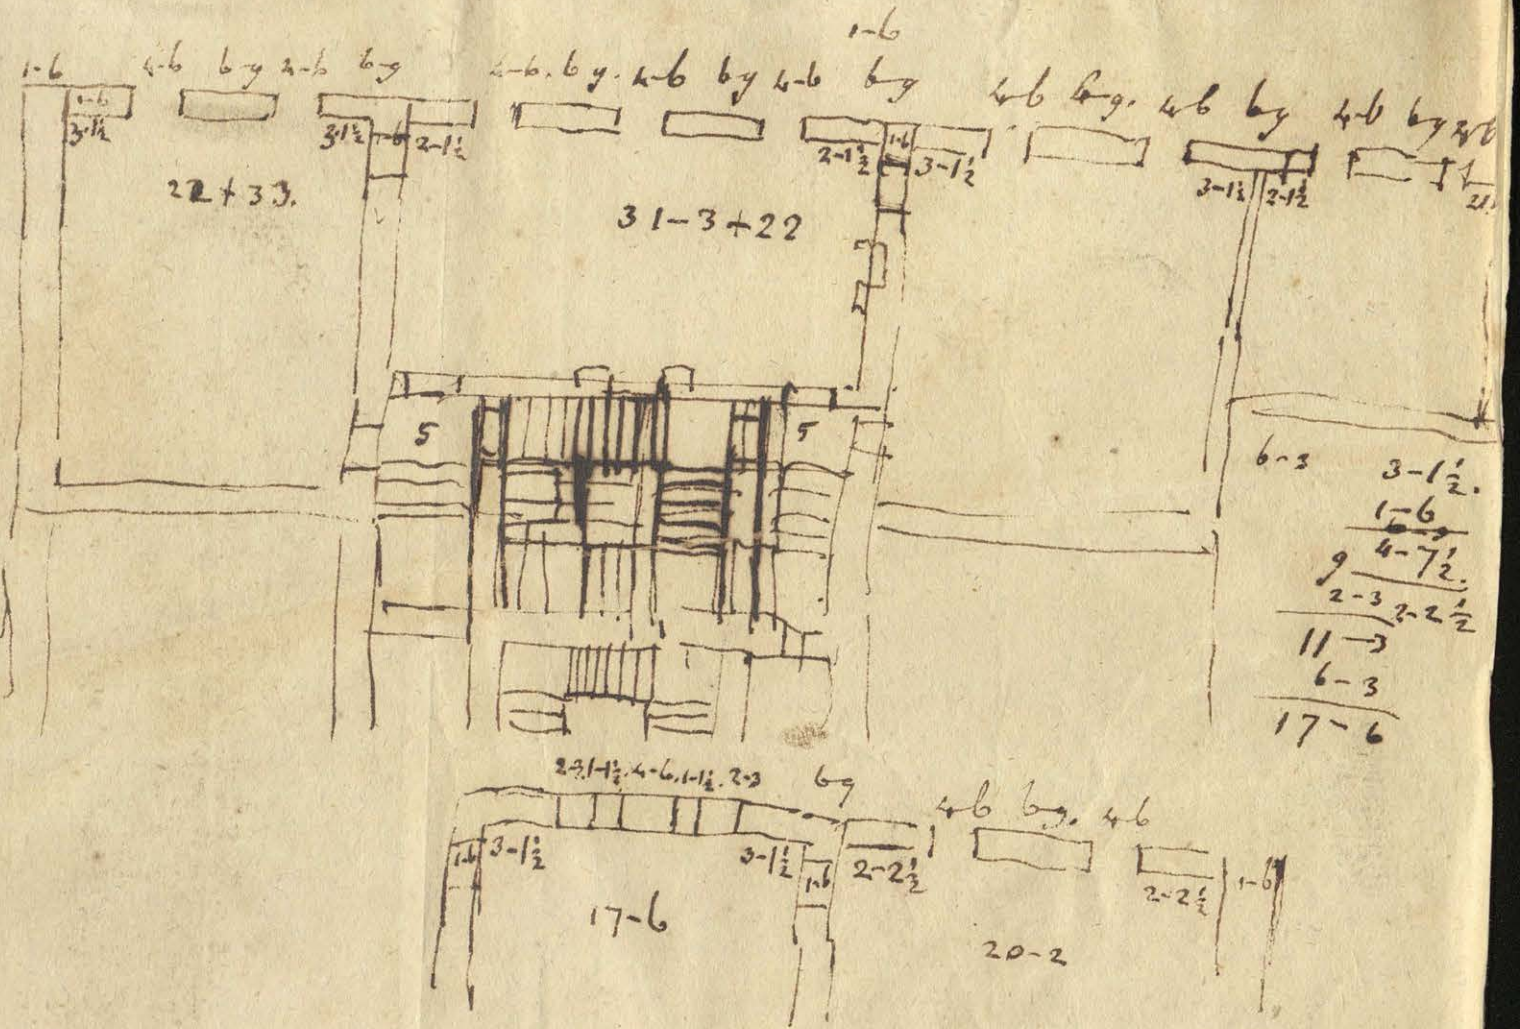 1-6
1-6 4-6 6-9 4-6 6-9 4-6. 6 9. 4-6 6-9 4-6 6-9 4-6 6-9. 4-6 6-9 4-6 6-9
1-6 3-1½ 3-1½ 1-6 2-1½ 2-1½ 1-6 3-1½ 3-1½ 2-1½
22+33. 31-3+22
5 5
6-3 3-1½.
1-6
4-7½.
9
2-3 2-2½
11-3
6-3
17-6
2-3, 1-1½. 4-6, 1-1½. 2-3 6-9 4-6 6-9. 4-6
1-6 3-1½ 3-1½ 1-6 2-2½ 2-2½ 1-6
17-6 20-2